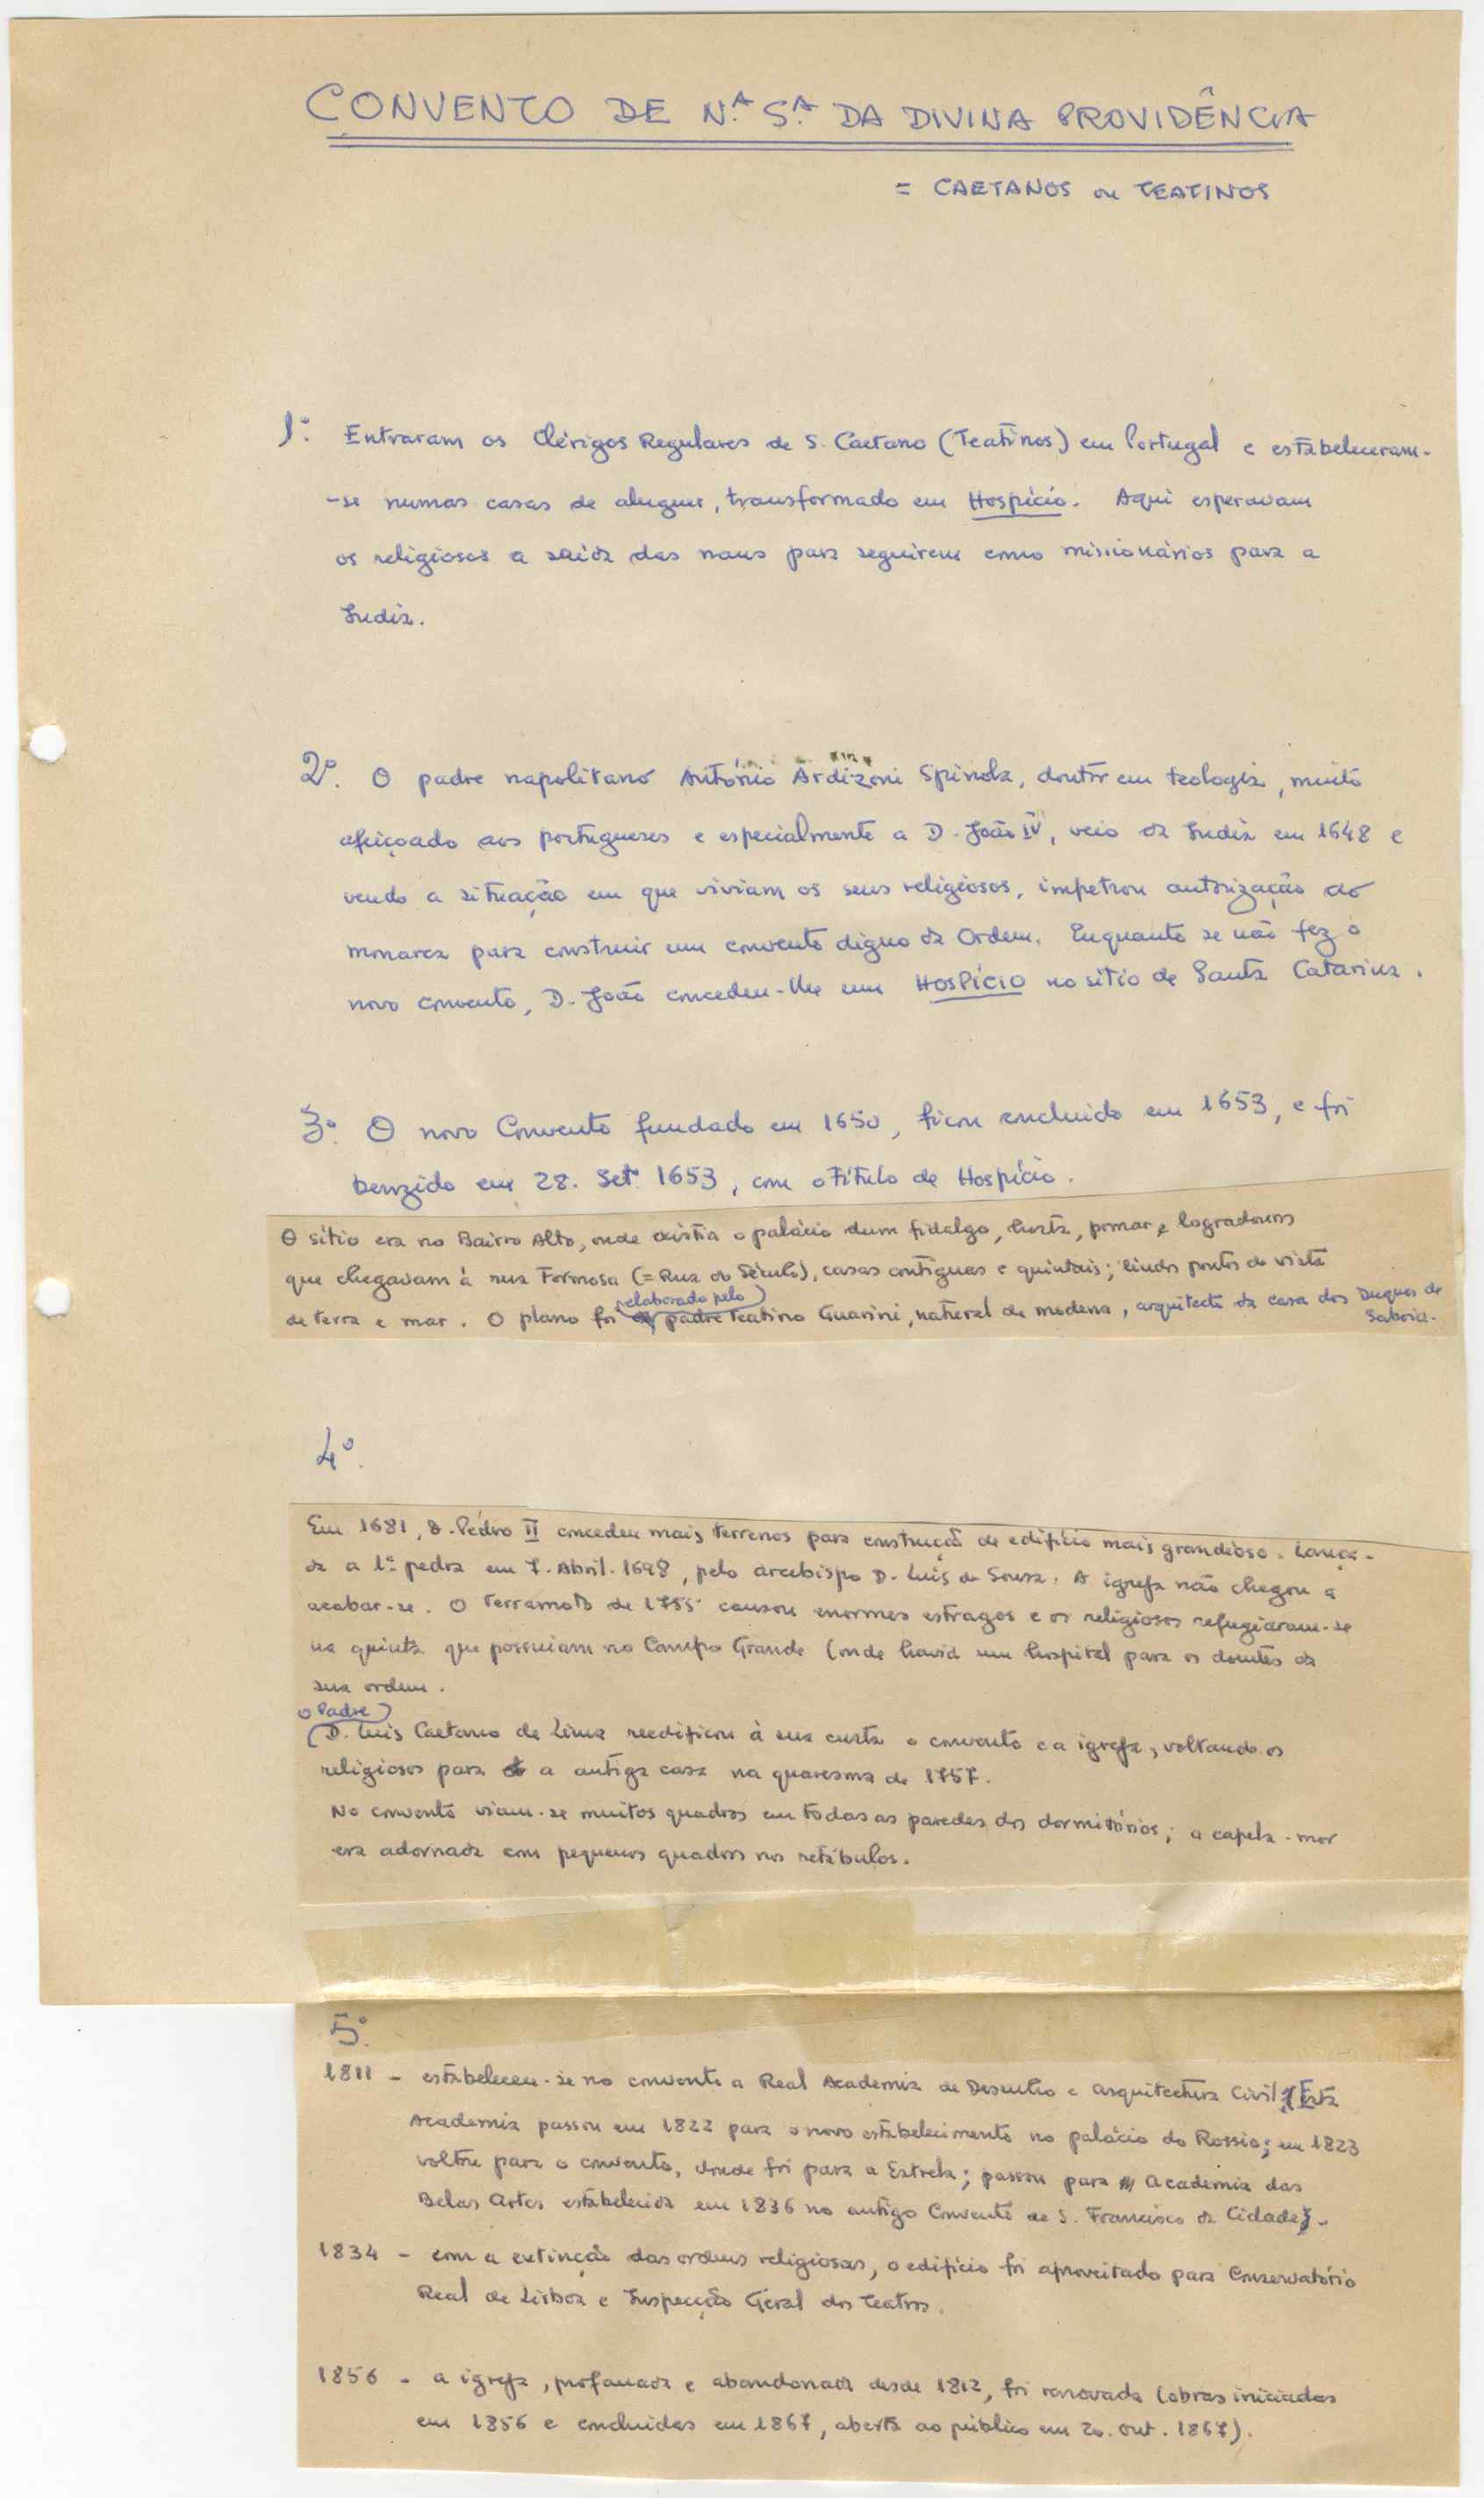 CONVENTO DE N.ª S.ª DA DIVINA PROVIDÊNCIA
= CAETANOS ou TEATINOS
1º. Entraram os Clérigos Regulares de S. Caetano (Teatinos) em Portugal e estabeleceram-
-se numas casas de aluguer, transformado em Hospício. Aqui esperavam
os religiosos a saída das naus para seguirem como missionários para a
Índia.
2º. O padre napolitano António Ardizoni Spinola, doutor em teologia, muito
afeiçoado aos portugueses e especialmente a D. João IV, veio da Índia em 1648 e
vendo a situação em que viviam os seus religiosos, impetrou autorização ao
monarca para construir um convento digno da Ordem. Enquanto se não fez o
novo convento, D. João concedeu-lhe um HOSPÍCIO no sítio de Santa Catarina.
3º. O novo Convento fundado em 1650, ficou concluido em 1653, e foi
benzido em 28. Set. 1653, com o título de Hospício.
O sítio era no Bairro Alto, onde existia o palácio dum fidalgo, horta, pomar e logradouros
que chegavam à rua Formosa (= Rua do Século), casas contíguas e quintais; lindos pontos de vista
de terra e mar. O plano foi elaborado pelo padre teatino Guarini, natural de Modena, arquitecto da casa dos Duques de
Saboia.
4º.
Em 1681, D. Pedro II concedeu mais terrenos para construção de edifício mais grandioso. Lança-
da a 1ª pedra em 7. Abril. 1698, pelo arcebispo D. Luís de Sousa. A igreja não chegou a
acabar-se. O terramoto de 1755 causou enormes estragos e os religiosos refugiaram-se
na quinta que possuiam no Campo Grande (onde havia um hospital para os doentes da
sua ordem.
o Padre
D. Luís Caetano de Lima reedificou à sua custa o convento e a igreja, voltando os
religiosos para a antiga casa na quaresma de 1757.
No convento viam-se muitos quadros em todas as paredes dos dormitórios; a capela-mor
era adornada com pequenos quadros nos retábulos.
5º.
1811 - estabeleceu-se no convento a Real Academia de Desenho e Arquitectura Civil {Esta
Academia passou em 1822 para o novo estabelecimento no palácio do Rossio; em 1823
voltou para o convento, donde foi para a Estrela; passou para Academia das
Belas Artes estabelecida em 1836 no antigo Convento de S. Francisco da Cidade}.
1834 - com a extinção das ordens religiosas, o edifício foi aproveitado para Conservatório
Real de Lisboa e Inspecção Geral dos Teatros.
1856 - a igreja, profanada e abandonada desde 1812, foi renovada (obras iniciadas
em 1856 e concluidas em 1867, aberta ao público em 20. Out. 1867).